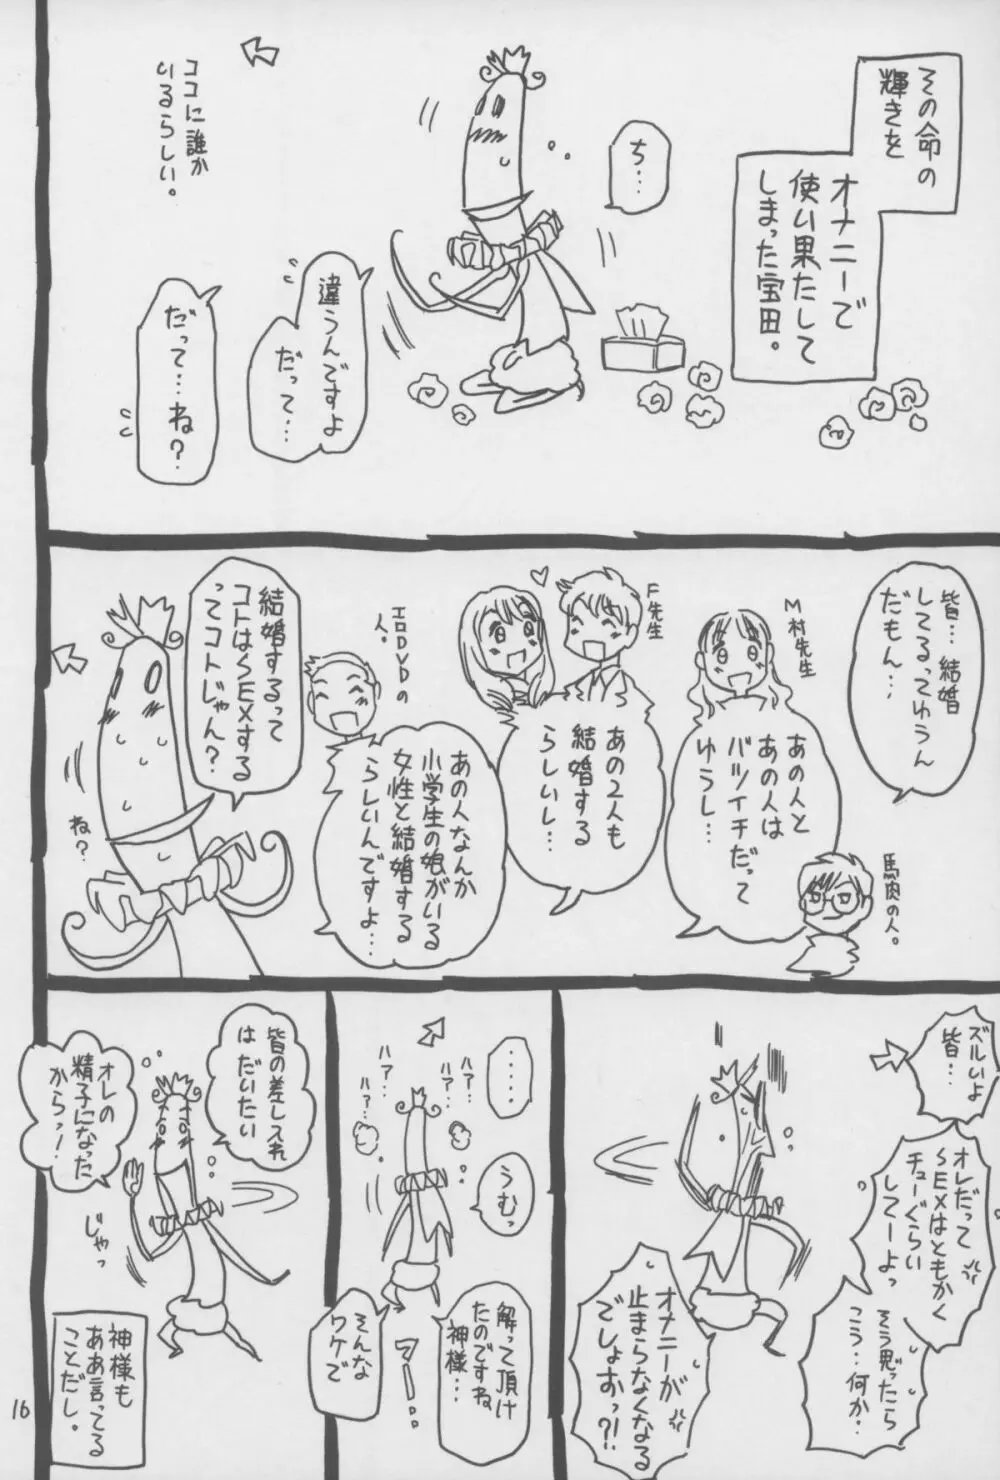 その命の
輝きを
オナニーで
使い果たして
しまった宝田。
ち…
ココに誰か
いるらしい。
違うんですよ
だって…
だって…ね?
皆…結婚
してるってゆうん
だもん…
M村先生
あの人と
あの人は
バツイチだって
ゆうし…
馬肉の人。
F先生
あの2人も
結婚する
らしいし…
エロDVDの
人。
あの人なんか
小学生の娘がいる
女性と結婚する
らしいんですよ…
結婚するって
コトはSEXする
ってコトじゃん?
ね?
ズルいよ
皆…
オレだって
SEXはともかく
チューぐらい
してーよっ
そう思ったら
こう…何か…
オナニーが
止まらなくなる
でしょおっ!?
……
うむっ
ハァ…
ハァ…
ハァ…
ハァ…
解って頂け
たのですね
神様…
そんな
ワケで
皆の差し入れ
は だいたい
オレの
精子になった
からっ!
じゃっ
神様も
ああ言ってる
ことだし。
16